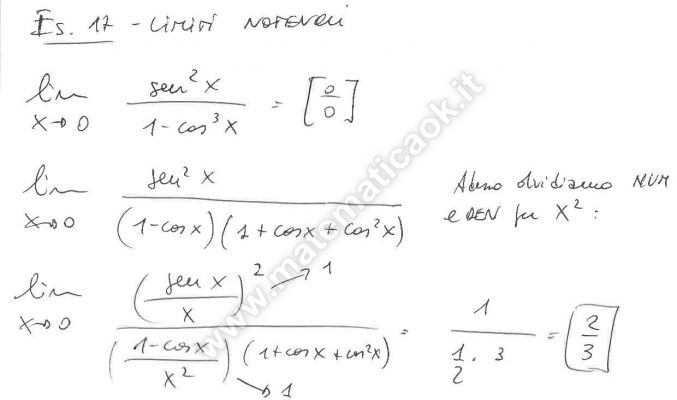 Es. 17 - Limiti notevoli
lim x→0 sen²x / (1-cos³x) = [0/0]
lim x→0 sen²x / ((1-cosx)(1+cosx+cos²x)) Adesso dividiamo NUM
e DEN per x²:
lim x→0 (sen x / x)² → 1 / ((1-cosx / x²) (1+cosx+cos²x)) = 1 / (1/2 · 3) = 2/3
→ 1
www.matematicaok.it